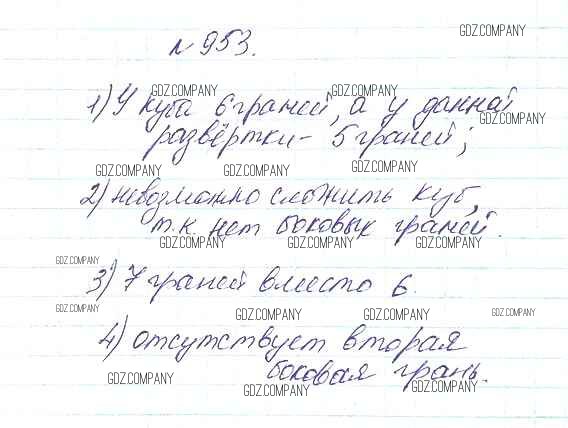 № 953.
GDZ.COMPANY
GDZ.COMPANY GDZ.COMPANY
1) У куба 6 граней, а у данной
GDZ.COMPANY
развёртки - 5 граней;
GDZ.COMPANY GDZ.COMPANY GDZ.COMPANY
2) невозможно сложить куб,
т.к. нет боковых граней.
GDZ.COMPANY GDZ.COMPANY GDZ.COMPANY
GDZ.COMPANY
3) 7 граней вместо 6.
GDZ.COMPANY
GDZ.COMPANY GDZ.COMPANY GDZ.COMPANY
4) отсутствует вторая
боковая грань.
GDZ.COMPANY GDZ.COMPANY GDZ.COMPANY